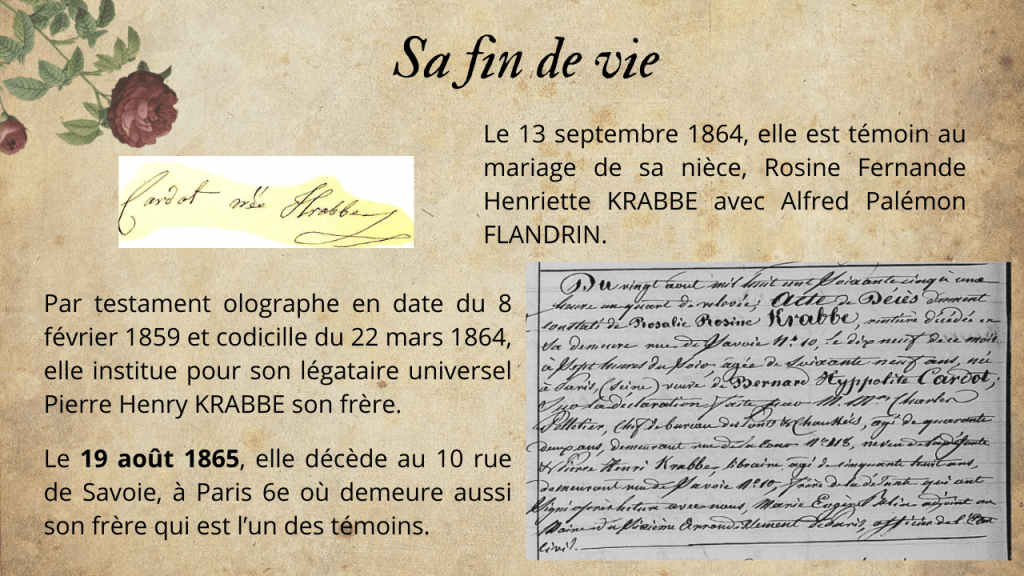 Sa fin de vie
Le 13 septembre 1864, elle est témoin au
mariage de sa nièce, Rosine Fernande
Henriette KRABBE avec Alfred Palémon
FLANDRIN.
Cardot née Krabbe
Par testament olographe en date du 8
février 1859 et codicille du 22 mars 1864,
elle institue pour son légataire universel
Pierre Henry KRABBE son frère.
Le 19 août 1865, elle décède au 10 rue
de Savoie, à Paris 6e où demeure aussi
son frère qui est l’un des témoins.
Du vingt aout mil huit cent Soixante cinq à une
heure un quart de relevée; Acte de Décès dument
constaté de Rosalie Rosine Krabbe, rentière décédée en
Sa demeure rue de Savoie N° 10, le dix neuf de ce mois
à Sept heures du Soir agée de Soixante neuf ans, née
à Paris (Seine) veuve de Bernard Hyppolite Cardot,
Sur la déclaration faite par M.M. Charles
Pelletier, Chef de bureau des Ponts & Chaussées, agé de quarante
deux ans, demeurant rue de la tour N° 118, neveu de
& Pierre Henri Krabbe, libraire agé de cinquante huit ans,
demeurant rue de Savoie N° 10, frère de la défunte qui ont
Signé après lecture avec nous, Marie Eugène adjoint au
Maire du Sixième Arrondissement de Paris, officier de l'Etat
civil.